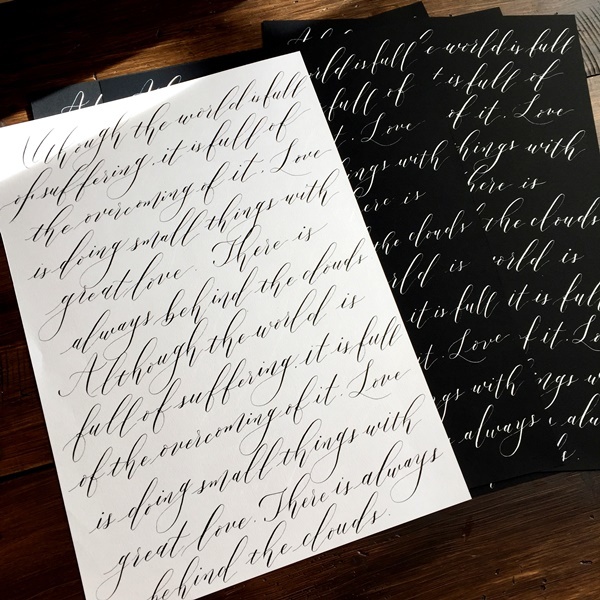 Although the world is full
of suffering, it is full of
the overcoming of it. Love
is doing small things with
great love. There is
always behind the clouds
Although the world is
full of suffering, it is full
of the overcoming of it. Love
is doing small things with
great love. There is always
behind the clouds.
rld is full
full of
t. Love
ngs with
ere is
he clouds
rld is
it is full
t. Love
gs with
always
e world is full
t is full of
of it. Love
hings with
here is
the clouds
orld is
it is full
f it. Love
ngs w
alu
s.